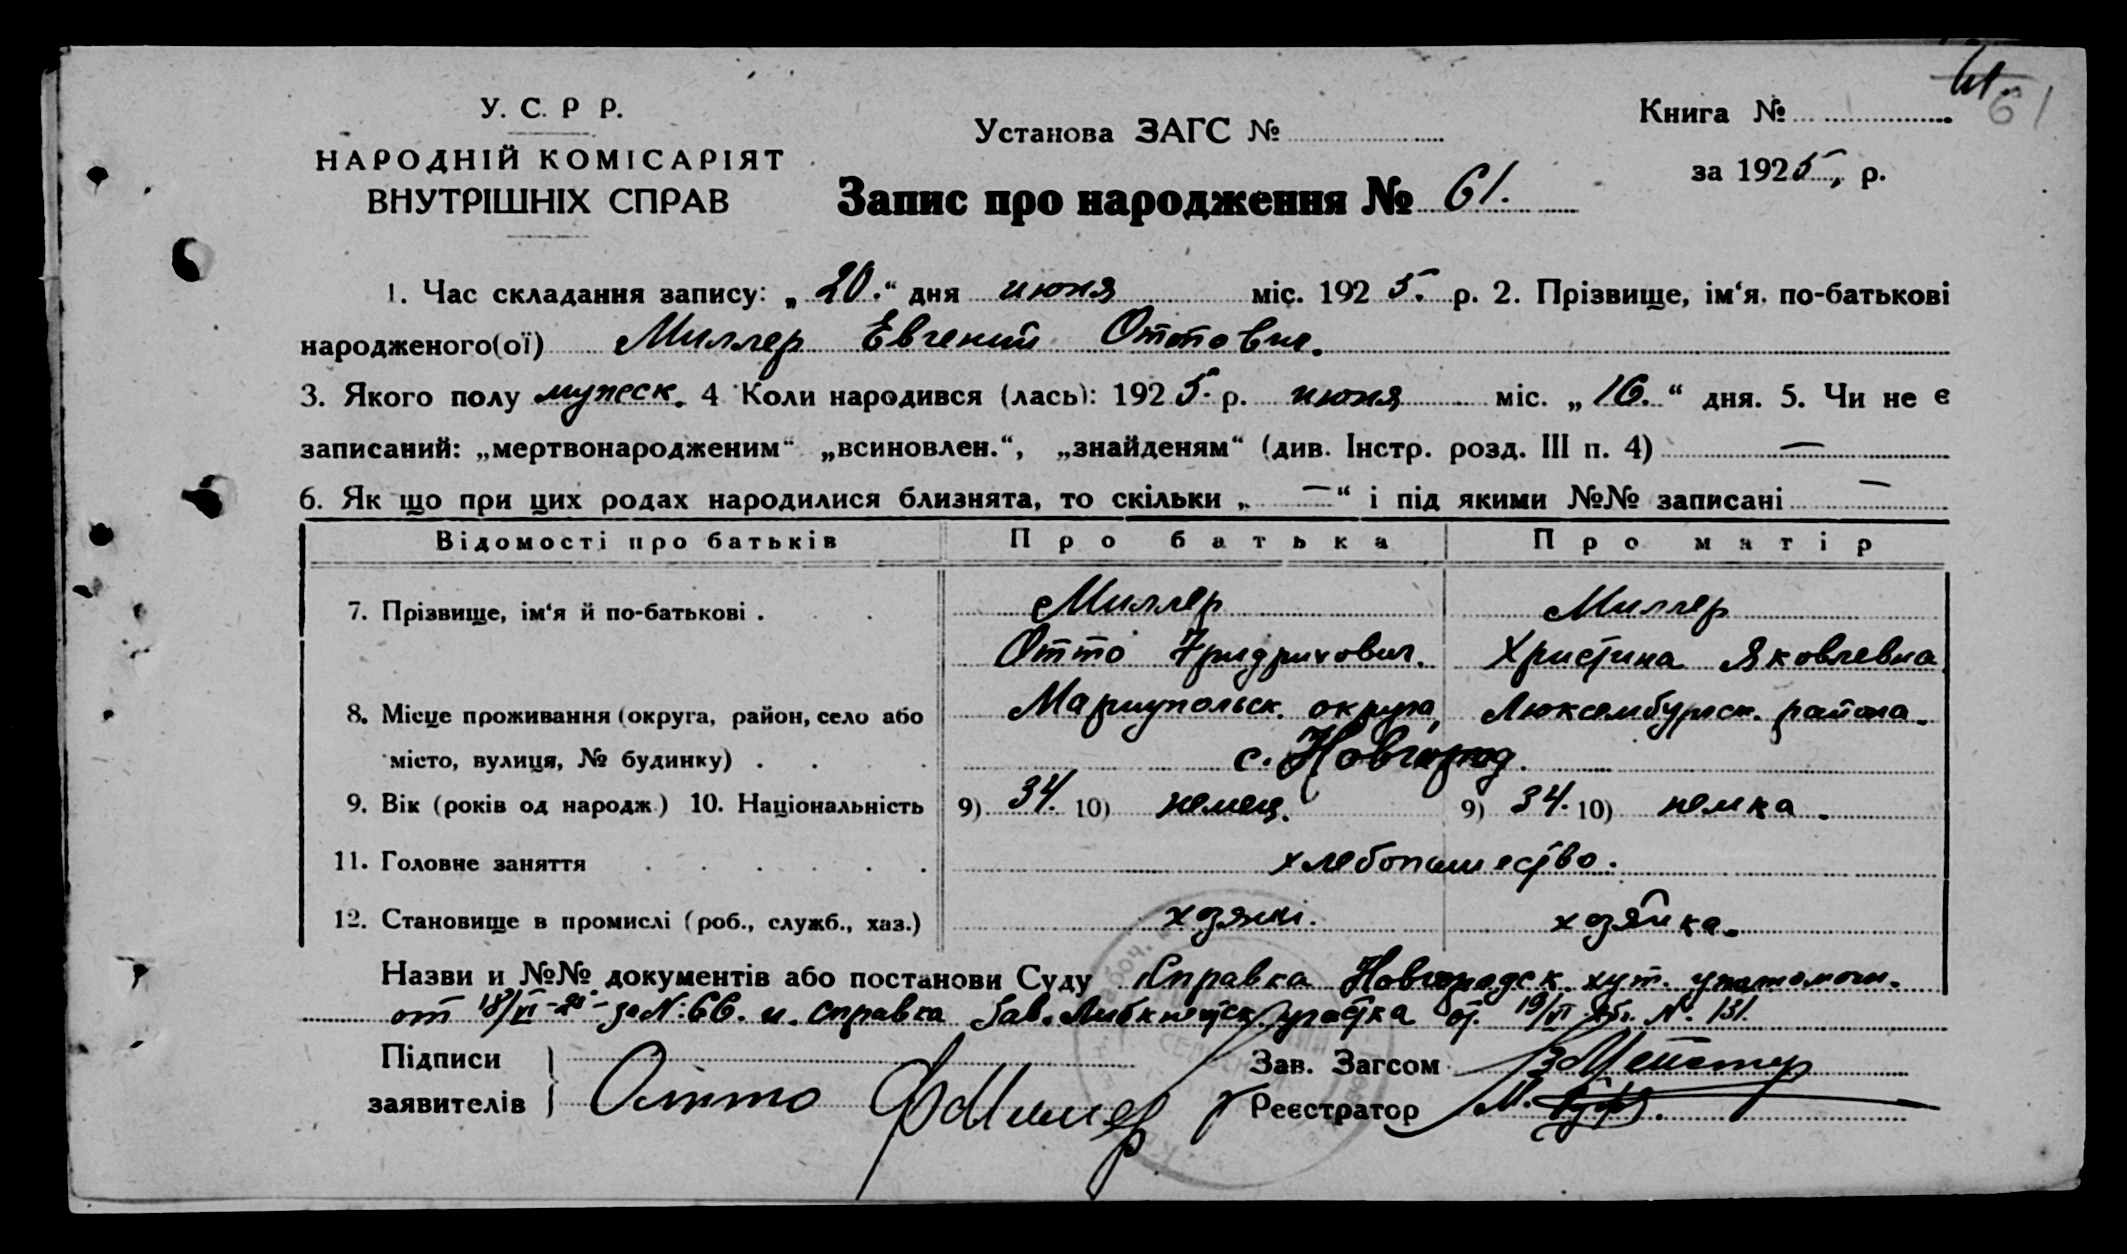 61.
У. С. Р Р.
НАРОДНІЙ КОМІСАРІЯТ
ВНУТРІШНІХ СПРАВ
Установа ЗАГС №
Книга № 61
за 1925, р.
Запис про народження № 61.
1. Час складання запису: „20.“ дня июня міс. 1925. р. 2. Прізвище, ім‘я, по-батькові
народженого(ої) Миллер Евгений Оттович.
3. Якого полу мужеск. 4 Коли народився (лась): 1925. р. июня міс. „16.“ дня. 5. Чи не є
записаний: „мертвонародженим“ „всиновлен.“, „знайденям“ (див. Інстр. розд. III п. 4) —
6. Як що при цих родах народилися близнята, то скільки „—“ і під якими №№ записані —
Відомості про батьків Про батька Про матір
7. Прізвище, ім‘я й по-батькові . Миллер Миллер
Отто Фридрихович. Христина Яковлевна
8. Місце проживання (округа, район, село або Мариупольск. округа, Люксембургск. района.
місто, вулиця, № будинку) . с. Новгород.
9. Вік (років од народж.) 10. Національність 9) 34. 10) немец. 9) 34. 10) немка.
11. Головне заняття хлебопашество.
12. Становище в промислі (роб., служб., хаз.) хозяин. хозяйка.
Назви и №№ документів або постанови Суду Справка Новгородск. хут. уполномоч.
от 18/VI-25 за N. 66. и справка Зав. Либкнетск. участка от 19/VI N. 131.
Підписи
заявителів Отто Ф Миллер
Зав. Загсом
Реєстратор М.